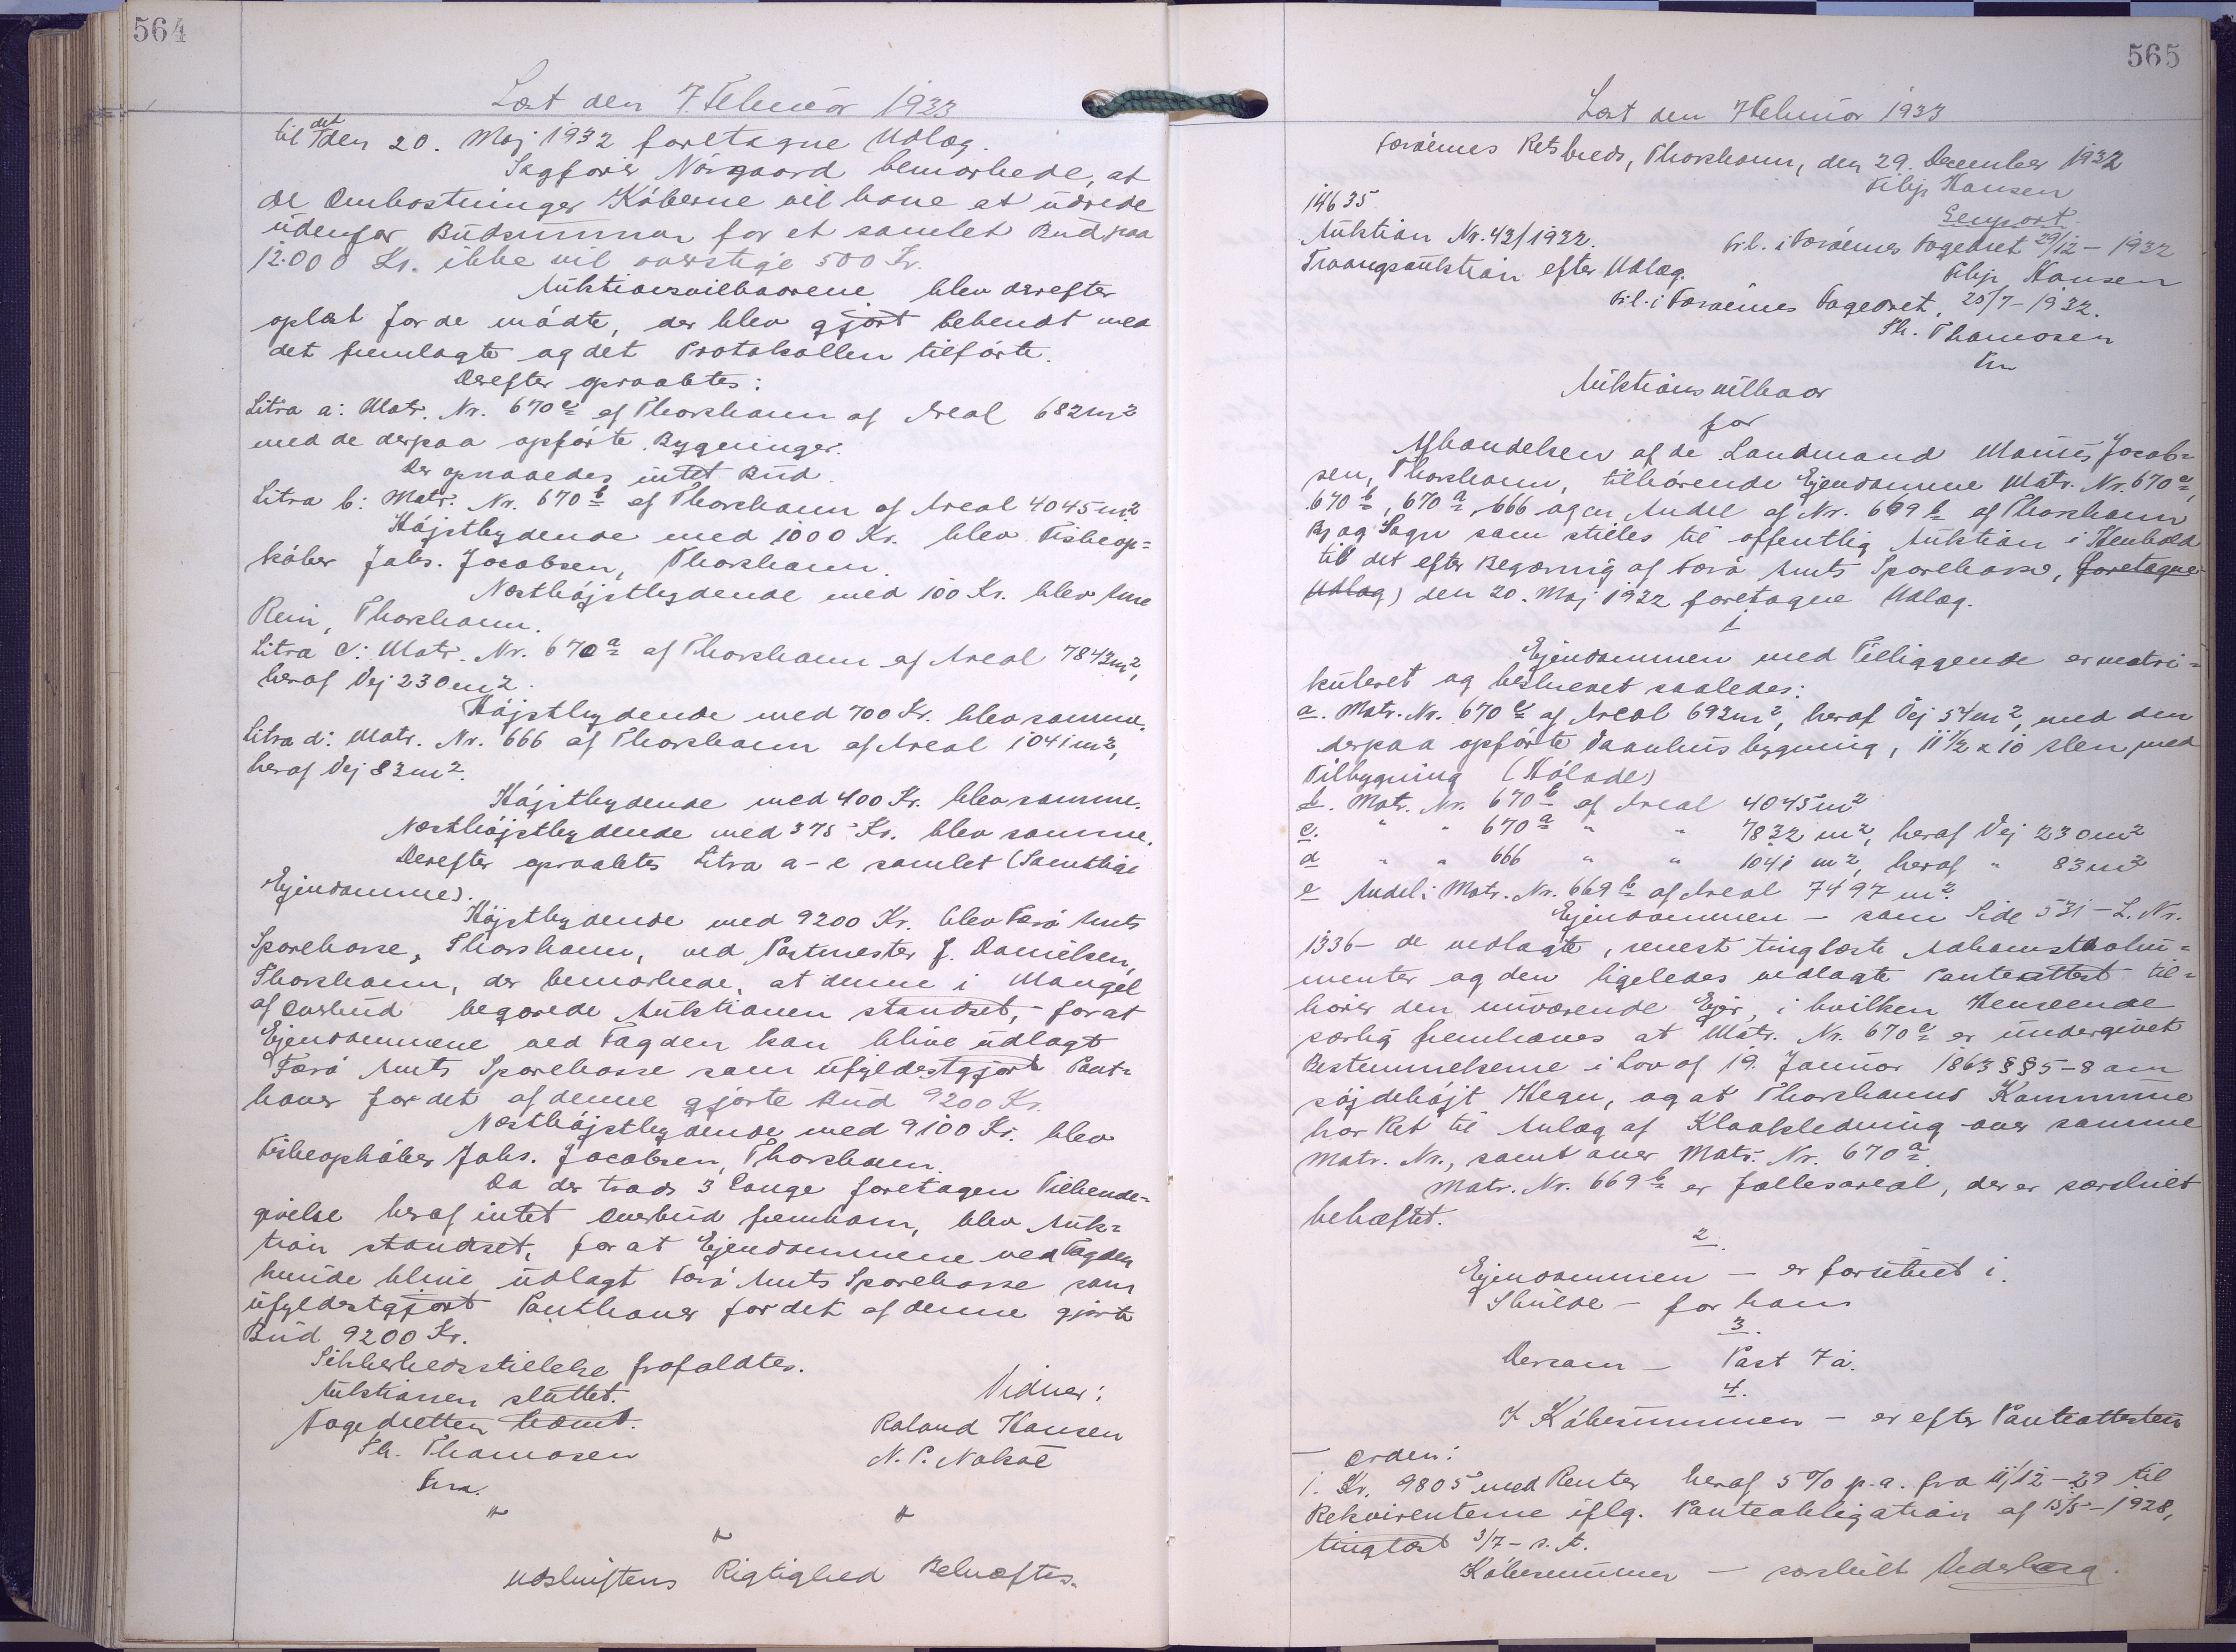 564
Læst den 7. Februar 1933
til det den 20. Maj 1932 foretagne Udlæg.
Sagfører Nórgaard bemærkede, at
de Omkostninger Køberne vil have at udrede
udenfor Budsummen for et samlet Bud paa
12.000 Kr. ikke vil overstige 500 Kr.
Auktionsvilkaarene blev derefter
oplæst for de mødte, der blev gjort bekendt med
det fremlagte og det Protokollen tilførte.
Derefter opraabtes:
Litra a: Matr. Nr. 670c af Thorshavn af Areal 682m2
med de derpaa opførte Bygninger.
Der opnaaedes intet Bud.
Litra b: Matr. Nr. 670b af Thorshavn af Areal 4045m2.
Højstbydende med 1000 Kr. blev Fiskeop=
køber Johs. Jacobsen, Thorshavn.
Næsthøjstbydende med 100 Kr. blev
Rein, Thorshavn.
Litra c: Matr. Nr. 670a af Thorshavn af Areal 7843m2,
heraf Vej 230m2.
Højstbydende med 700 Kr. blev samme.
Litra d: Matr. Nr. 666 af Thorshavn af Areal 1041m2,
heraf Vej 83m2.
Højstbydende med 400 Kr. blev samme.
Næsthøjstbydende med 375 Kr. blev samme.
Derefter opraabtes Litra a-e samlet (Samtlige
Ejendomme).
Højstbydende med 9200 Kr. blev Færø Amts
Sparekasse, Thorshavn, ved Postmester J. Danielsen,
Thorshavn, der bemærkede, at denne i Mangel
af Overbud begærede Auktionen standset, for at
Ejendommene ved Fogden kan blive udlagt
Færø Amts Sparekasse som ufyldestgjort Pant=
haver for det af denne gjorte Bud 9200 Kr.
Næsthøjstbydende med 9100 Kr. blev
Fiskeopkøber Johs. Jacobsen, Thorshavn.
Da der trods 3 Gange foretagen Tilkende=
givelse heraf intet Overbud fremkom, blev Auk=
tion standset, for at Ejendommene ved Fogden
kunde blive udlagt Færø Amts Sparekasse som
ufyldestgjort Panthaver for det af denne gjorte
Bud 9200 Kr.
Sikkerhedsstillelse frafaldtes.
Auktionen sluttet. Vidner:
Fogedretten hævet. Roland Hansen
Th. Thomasen N. P. Nolsøe
Fm.
" " "
Udskriftens Rigtighed Bekræftes.
565
Læst den 7 Februar 1933
Færøernes Retskreds, Thorshavn, den 29. December 1932
Filip Hansen
Genpart.
14635.
Auktion Nr. 43/1932. Frl. i Færøernes Fogedret 29/12 - 1932
Tvangsauktion efter Udlæg. Filip Hansen
Frl. i Færøernes Fogedret, 20/7 - 1932.
Th. Thomasen
Fm
Auktionsvilkaar
for
Afhændelsen af de Landmand Marius Jacob=
sen, Thorshavn, tilhørende Ejendomme Matr. Nr. 670c,
670b, 670a, 666 og en Andel af Nr. 669b af Thorshavn
By og Sogn som stilles til offentlig Auktion i Henhold
til det efter Begæring af Færø Amts Sparekasse, foretagne
Udlæg) den 20. Maj 1932 foretagne Udlæg.
1
Ejendommen med Tilliggende er matri=
kuleret og beskrevet saaledes:
a. Matr. Nr. 670c af Areal 692m2, heraf Vej 54m2, med den
derpaa opførte Vaanhusbygning, 11 1/2 x 10 Alen, med
Tilbygning (Hølade)
b. Matr. Nr. 670b af Areal 4045m2
c. " " 670a " " 7832 m2, heraf Vej 230m2
d " " 666 " " 1041 m2, heraf " 83m2
e Andel i Matr. Nr. 669b af Areal 7497 m2.
Ejendommen - som Side 531 - L. Nr.
1336 - de vedlagte, senest tinglæste Adkomstdoku=
menter og den ligeledes vedlagte Panteattest til=
hører den nuværende Ejer, i hvilken Henseende
særlig fremhæves at Matr. Nr. 670c er undergivet
Bestemmelserne i Lov af 19. Januar 1863 §§ 5-8 om
søjdehøjt Hegn, og at Thorshavns Kommune
har Ret til Anlæg af Kloakledning over samme
Matr. Nr., samt over Matr. Nr. 670a.
Matr. Nr. 669b er fællesareal, der er særskilt
behæftet.
2.
Ejendommen - er forsikret i.
Skulde - for ham
3.
Dersom - Post 7 a.
4.
I Købesummen - er efter Panteattestens
- Orden:
1. Kr. 9805 med Renter heraf 5 % p.a. fra 11/12 - 29 til
Rekvirenterne iflg. Panteobligation af 15/5 - 1928,
tinglæst 3/7 - s. A.
Købesummen - særskilt Vederlag.